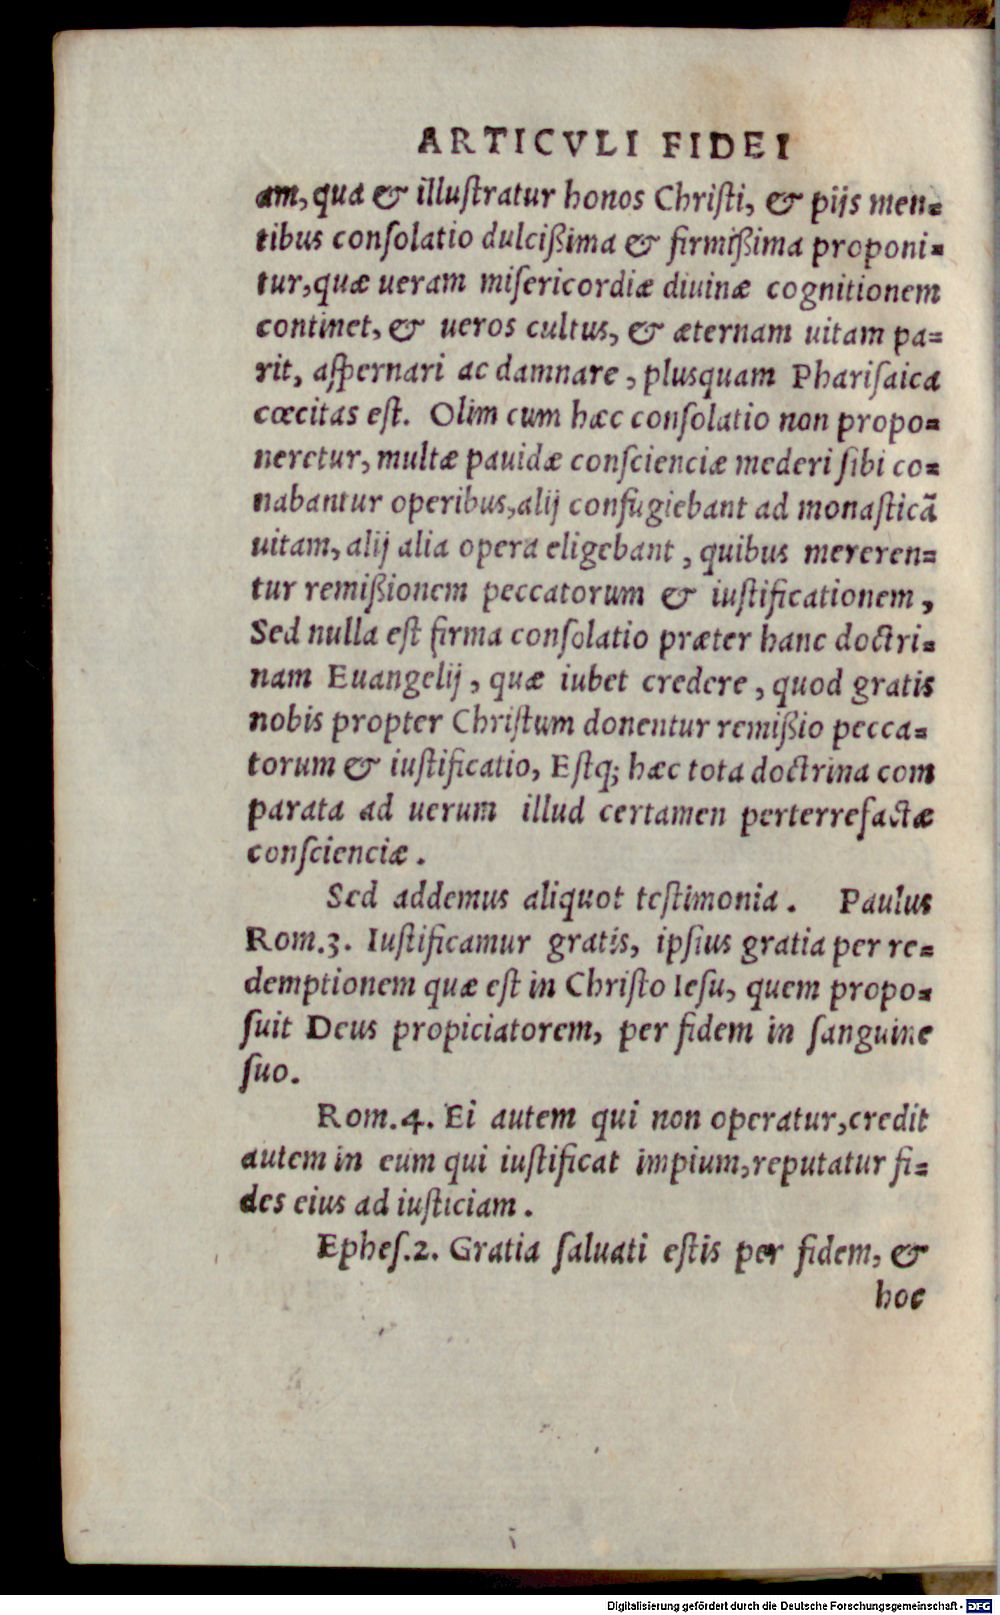 ARTICVLI FIDEI
am, qua & illuſtratur honos Chriſti, & pijs men=
tibus conſolatio dulcißima & firmißima proponi=
tur, quæ ueram miſericordiæ diuinæ cognitionem
continet, & ueros cultus, & æternam uitam pa=
rit, aſpernari ac damnare, plusquam Phariſaica
cœcitas eſt. Olim cum hæc conſolatio non propo=
neretur, multæ pauidæ conſcienciæ mederi ſibi co=
nabantur operibus, alij confugiebant ad monaſticã
uitam, alij alia opera eligebant, quibus mereren=
tur remißionem peccatorum & iuſtificationem,
Sed nulla eſt firma conſolatio præter hanc doctri=
nam Euangelij, quæ iubet credere, quod gratis
nobis propter Chriſtum donentur remißio pecca=
torum & iuſtificatio, Eſtq; hæc tota doctrina com
parata ad uerum illud certamen perterrefactæ
conſcienciæ.
Sed addemus aliquot teſtimonia. Paulus
Rom.3. Iuſtificamur gratis, ipſius gratia per re=
demptionem quæ eſt in Chriſto Ieſu, quem propo=
ſuit Deus propiciatorem, per fidem in ſanguine
ſuo.
Rom.4. Ei autem qui non operatur, credit
autem in eum qui iuſtificat impium, reputatur fi=
des eius ad iuſticiam.
Epheſ.2. Gratia ſaluati eſtis per fidem, &
hoc
Digitalisierung gefördert durch die Deutsche Forschungsgemeinschaft - DFG